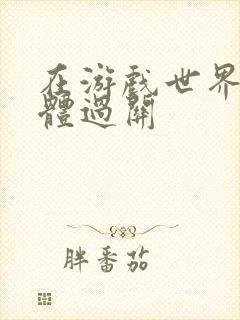 在游戲世界
體過關
胖番茄